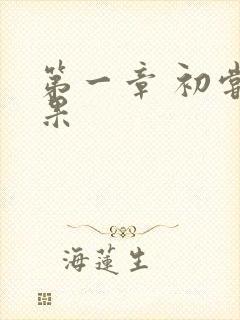 第一章 初尝
果
海莲生